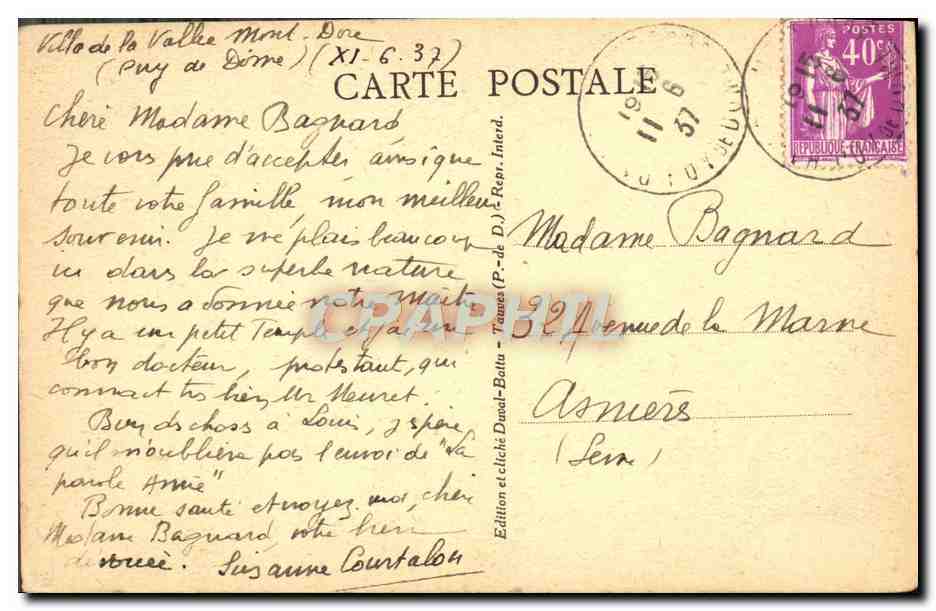 Villa de la Vallée Mont-Dore
(Puy de Dôme) (XI-6-37)
CARTE POSTALE
Chère Madame Bagnard
Je vous prie d'accepter ainsi que
toute votre famille, mon meilleur
souvenir. Je me plais beaucoup
ici dans la superbe nature
que nous a donnée notre Maître
Il y a un petit Temple et j'ai un
bon docteur, protestant, qui
connait très bien Mr Meuret.
Bien ds choses à Louis, j'espère
qu'il n'oubliera pas l'envoi de "La
parole Amie"
Bonne santé et croyez moi, chère
Madame Bagnard, votre bien
dévouée. Suzanne Courtalon
Edition et cliché Duval-Battu - Tauves (P.-de D.) - Repr. Interd.
19 15
11 6
37
PUY DE DOME
POSTES
40c
REPUBLIQUE FRANÇAISE
Madame Bagnard
32 Avenue de la Marne
Asnières
(Seine)
CRAPHIL